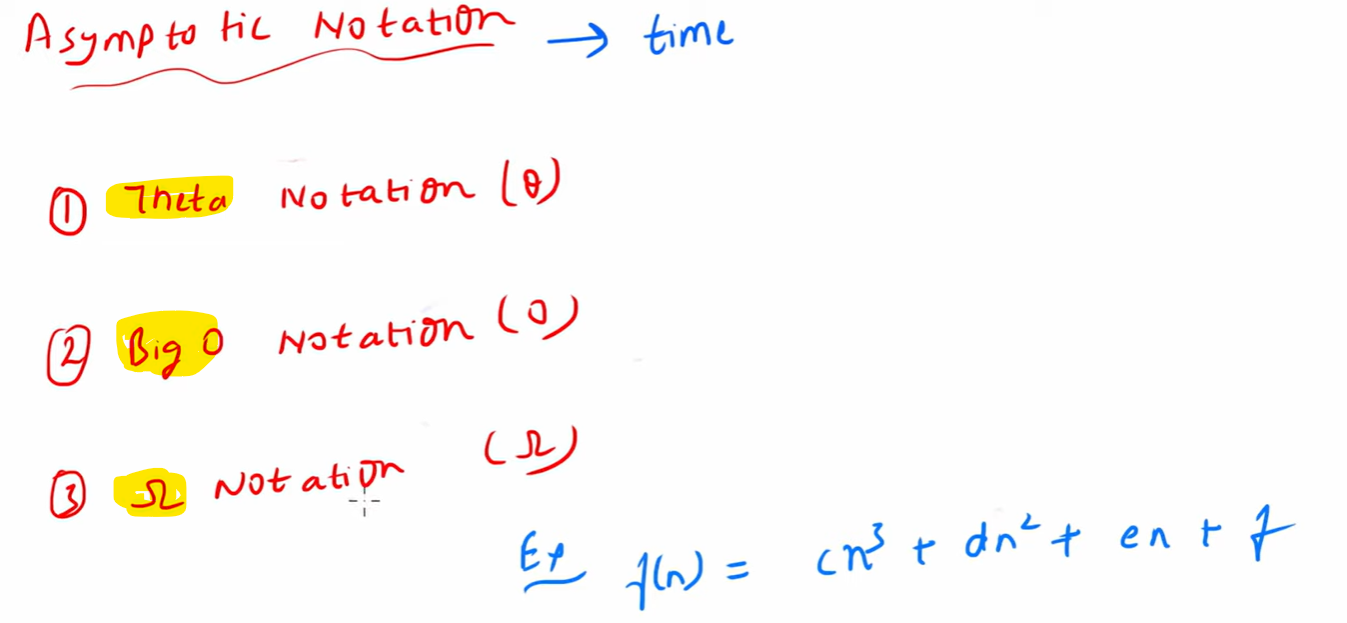 Asymptotic Notation → time
① Theta Notation (θ)
② Big O Notation (O)
③ Ω Notation (Ω)
Ex f(n) = cn³ + dn² + en + f